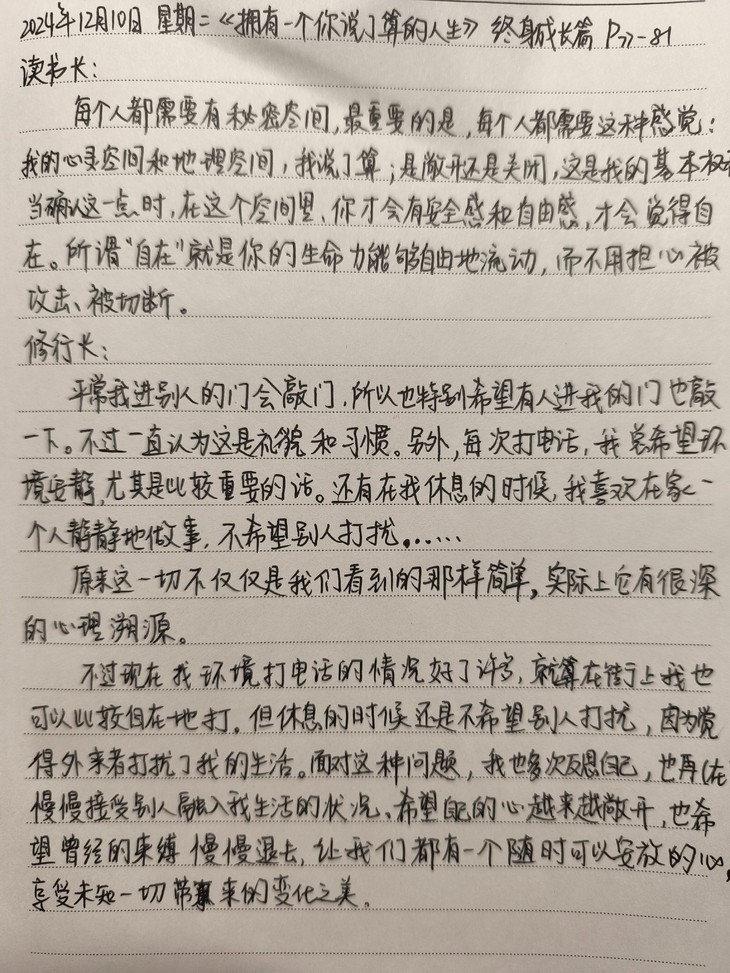 2024年12月10日 星期二《拥有一个你说了算的人生》终身成长篇 P77-81
读书长:
每个人都需要有秘密空间,最重要的是,每个人都需要这种感觉:
我的心灵空间和地理空间,我说了算;是敞开还是关闭,这是我的基本权
当确认这一点时,在这个空间里、你才会有安全感和自由感,才会觉得自
在。所谓“自在”就是你的生命力能够自由地流动,而不用担心被
攻击、被切断。
修行长:
平常我进别人的门会敲门,所以也特别希望有人进我的门也敲
一下。不过一直认为这是礼貌和习惯。另外,每次打电话,我总希望环
境安静,尤其是比较重要的话。还有在我休息的时候,我喜欢在家一
个人静静地做事,不希望别人打扰。……
原来这一切不仅仅是我们看到的那样简单,实际上它有很深
的心理溯源。
不过现在找环境打电话的情况好了许多,就算在街上我也
可以比较自在地打。但休息的时候还是不希望别人打扰,因为觉
得外来者打扰了我的生活。面对这种问题,我也多次反思自己,也再(在
慢慢接受别人融入我生活的状况、希望自己的心越来越敞开,也希
望曾经的束缚慢慢退去,让我们都有一个随时可以安放的心,
享受未知一切带来的变化之美。